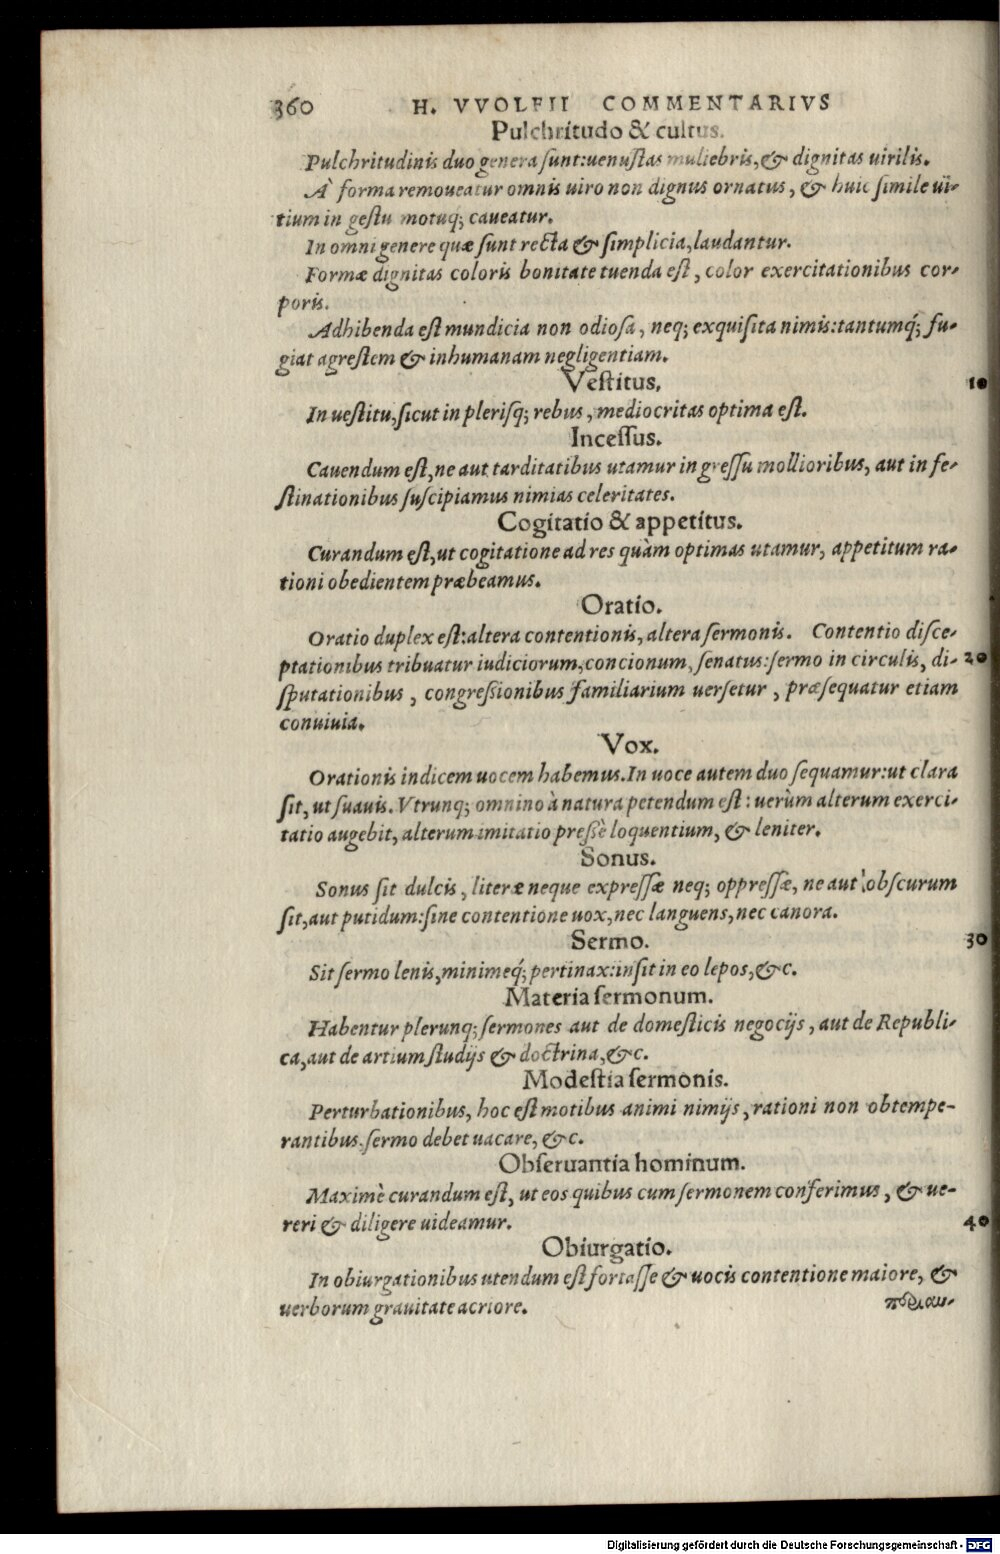 360 H. VVOLFII COMMENTARIVS
Pulchritudo & cultus.
Pulchritudinis duo genera sunt:uenustas muliebris, & dignitas uirilis.
A` forma remoueatur omnis uiro non dignus ornatus, & huic simile ui-
tium in gestu motuq; caueatur.
In omni genere quæ sunt recta & simplicia, laudantur.
Formæ dignitas coloris bonitate tuenda est, color exercitationibus cor-
poris.
Adhibenda est mundicia non odiosa, neq; exquisita nimis:tantumq́; fu-
giat agrestem & inhumanam negligentiam.
Vestitus. 10
In uestitu, sicut in plerisq; rebus, mediocritas optima est.
Incessus.
Cauendum est, ne aut tarditatibus utamur in gressu mollioribus, aut in fe-
stinationibus suscipiamus nimias celeritates.
Cogitatio & appetitus.
Curandum est, ut cogitatione ad res quàm optimas utamur, appetitum ra-
tioni obedientem præbeamus.
Oratio.
Oratio duplex est:altera contentionis, altera sermonis. Contentio disce-
ptationibus tribuatur iudiciorum, concionum, senatus:sermo in circulis, di- 20
sputationibus, congressionibus familiarium uersetur, præsequatur etiam
conuiuia.
Vox.
Orationis indicem uocem habemus. In uoce autem duo sequamur:ut clara
sit, ut suauis. Vtrunq; omnino à natura petendum est: uerùm alterum exerci-
tatio augebit, alterum imitatio pressè loquentium, & leniter.
Sonus.
Sonus sit dulcis, literæ neque expressæ neq; oppressæ, ne aut obscurum
sit, aut putidum:sine contentione uox, nec languens, nec canora.
Sermo. 30
Sit sermo lenis, minimeq́; pertinax:insit in eo lepos, &c.
Materia sermonum.
Habentur plerunq; sermones aut de domesticis negocijs, aut de Republi-
ca, aut de artium studijs & doctrina, &c.
Modestia sermonis.
Perturbationibus, hoc est motibus animi nimijs, rationi non obtempe-
rantibus, sermo debet uacare, &c.
Obseruantia hominum.
Maximè curandum est, ut eos quibus cum sermonem conferimus, & ue-
reri & diligere uideamur. 40
Obiurgatio.
In obiurgationibus utendum est fortasse & uocis contentione maiore, &
uerborum grauitate acriore.
Digitalisierung gefördert durch die Deutsche Forschungsgemeinschaft - DFG